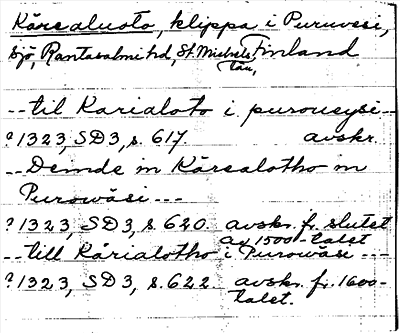 Kärsaluoto, klippa i Puruvesi,
sjö, Rantasalmi hd, St. Michels Finland
län,
--til Karialoto i purouesi--
?1323, SD3, s. 617. avskr.
--Demde in Kärsalotho in
Purowäsi---
?1323, SD3, s. 620. avskr. fr. slutet
av 1500-talet
--till Kärialotho i Purowäse---
?1323, SD3, s. 622. avskr. fr. 1600-
talet.